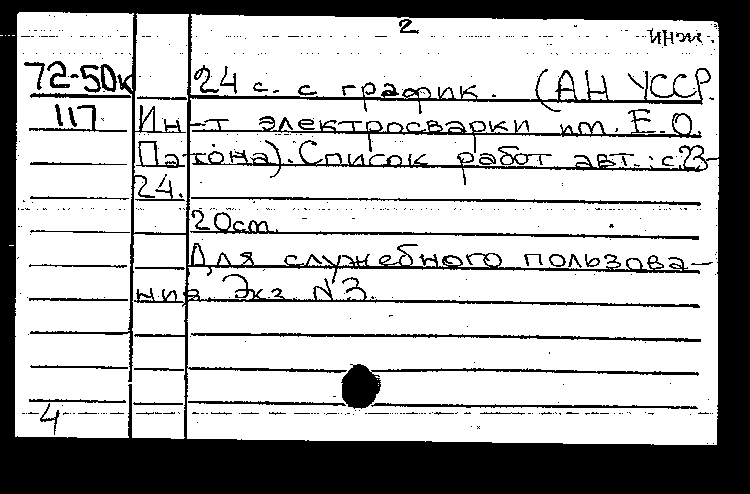 2
инж.
72-50к 24 с. с график. (АН УССР.
117 Ин-т электросварки им. Е.О.
Патона). Список работ авт.: с.23-
24.
20cm.
Для служебного пользова-
ния. Экз. №3.
4